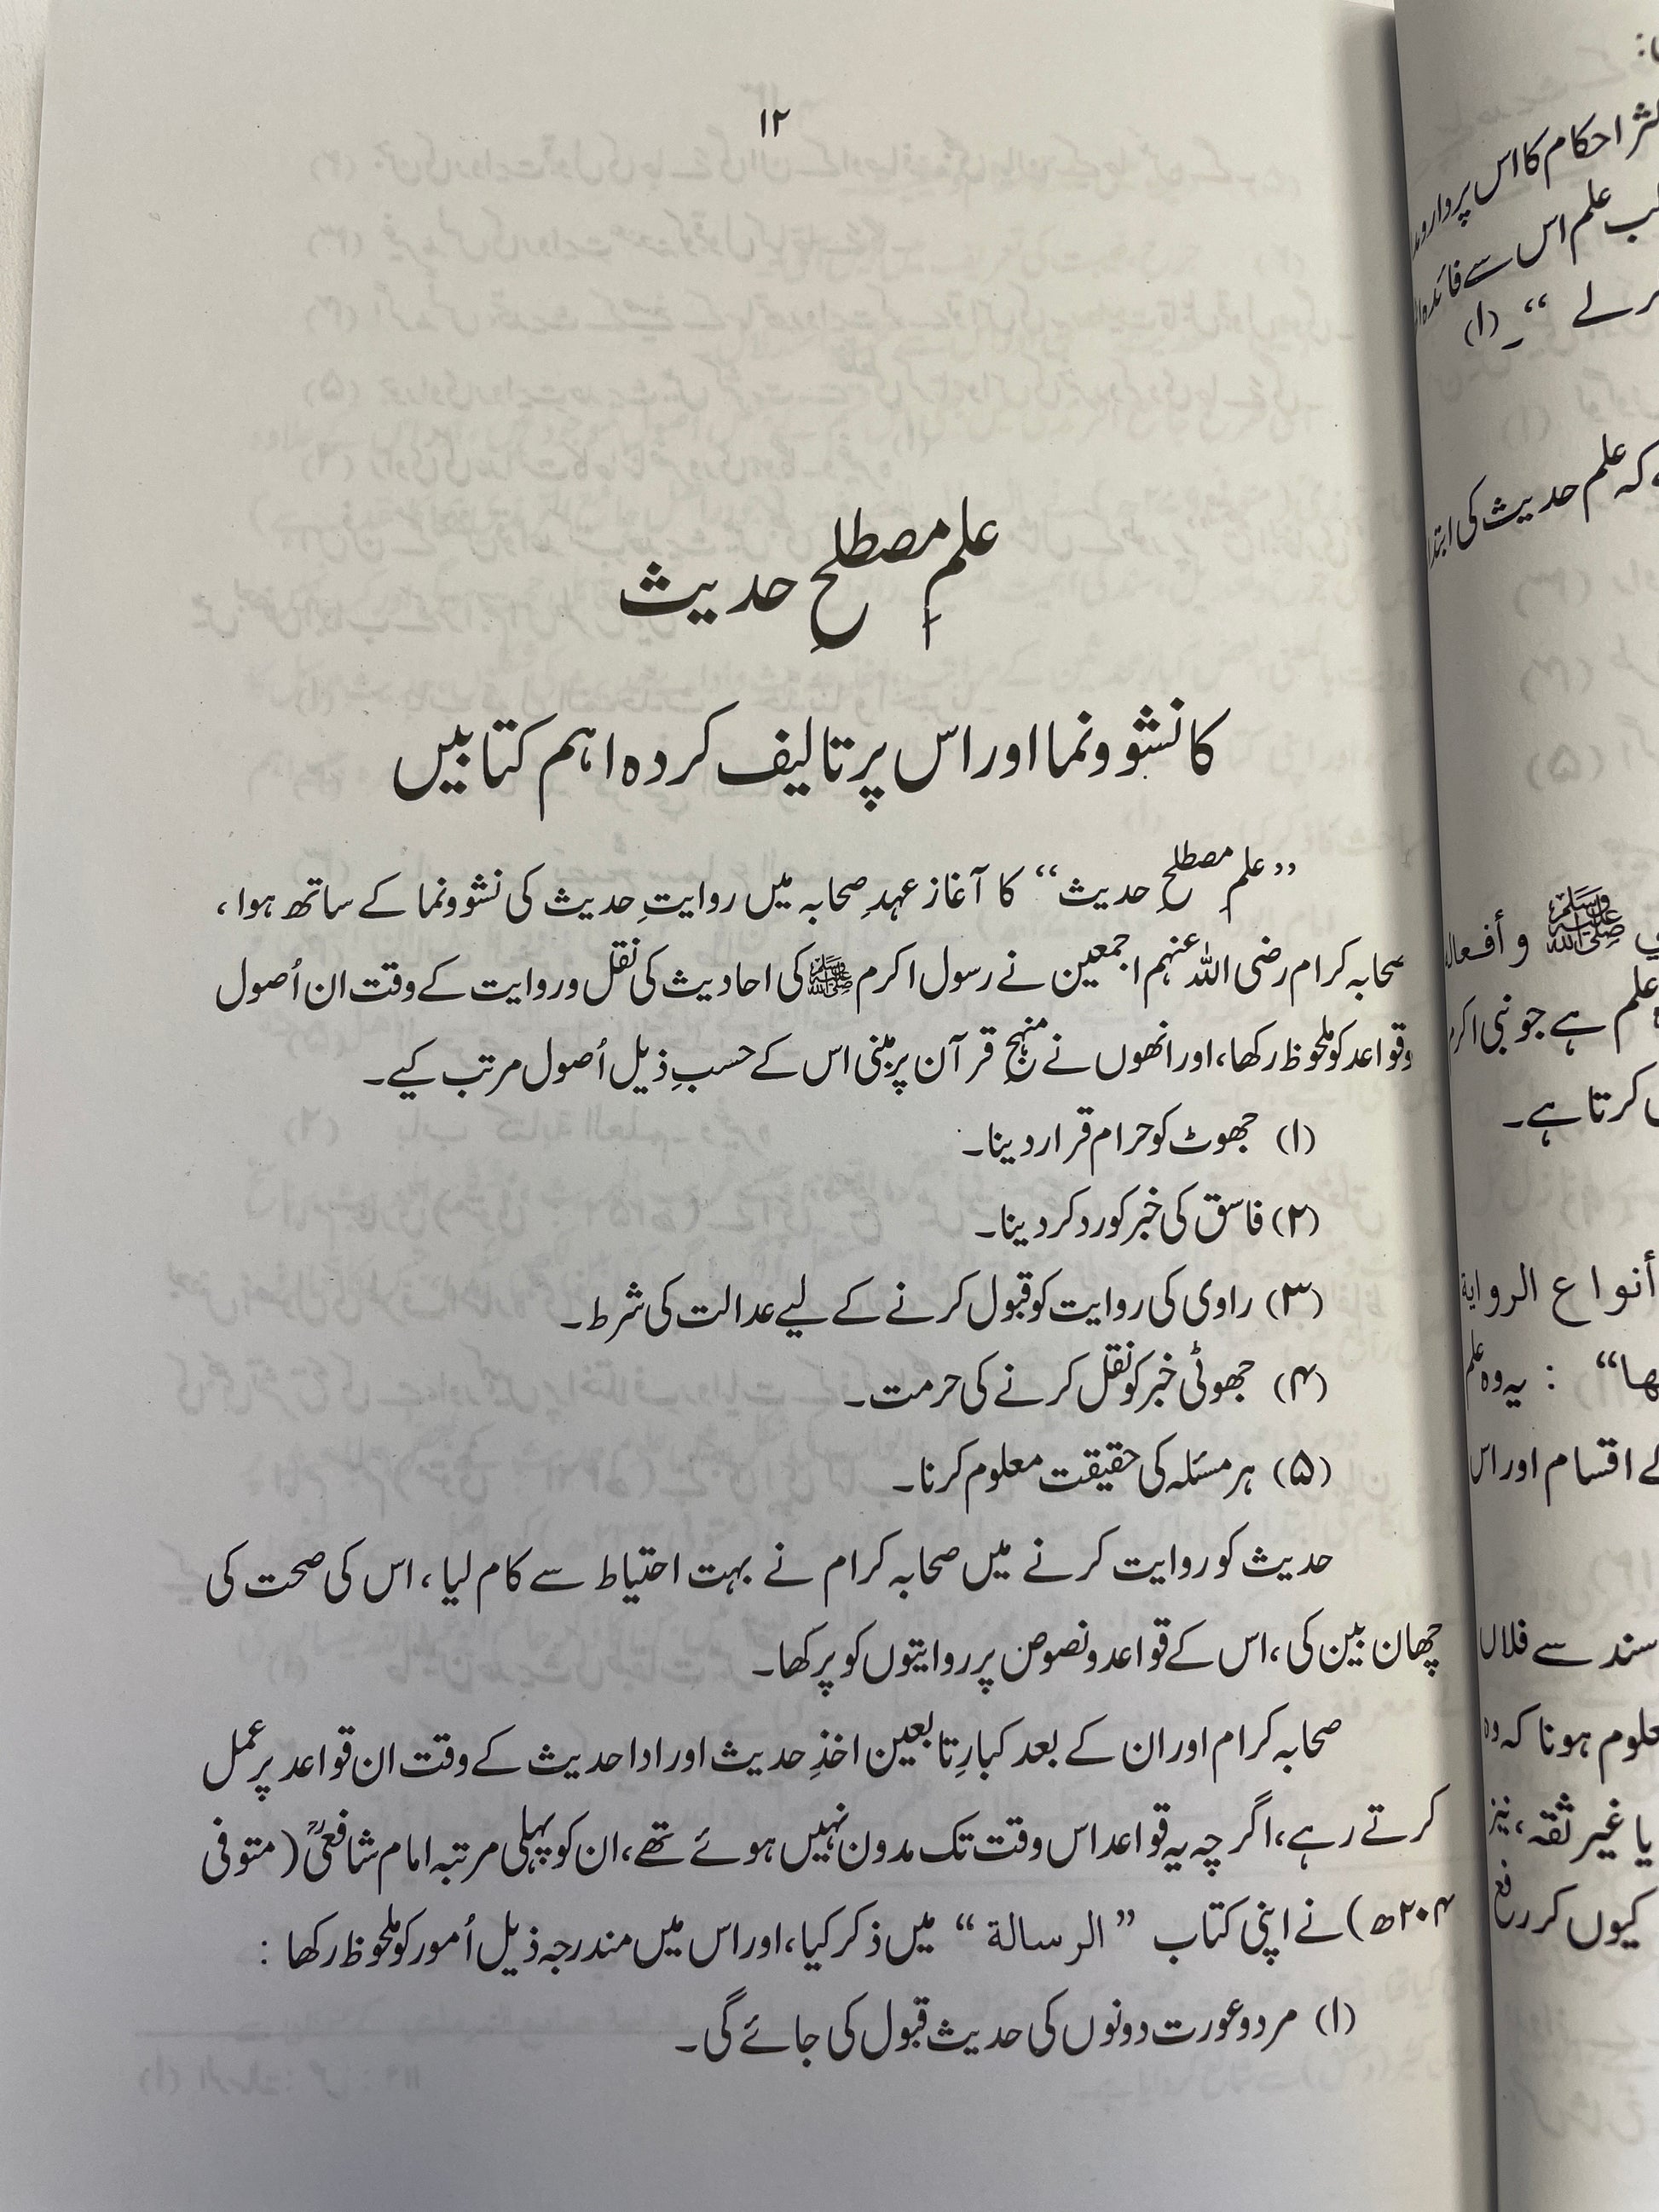 ۱۲
علمِ مصطلحِ حدیث
کا نشو ونما اور اس پر تالیف کردہ اہم کتابیں
”علمِ مصطلحِ حدیث“ کا آغاز عہدِ صحابہ میں روایتِ حدیث کی نشو ونما کے ساتھ ہوا،
صحابہ کرام رضی اللہ عنہم اجمعین نے رسول اکرم ﷺ کی احادیث کی نقل و روایت کے وقت ان اُصول
وقواعد کو ملحوظ رکھا، اور انھوں نے منہجِ قرآن پر مبنی اس کے حسبِ ذیل اُصول مرتب کیے۔
(۱) جھوٹ کو حرام قرار دینا۔
(۲) فاسق کی خبر کو رد کر دینا۔
(۳) راوی کی روایت کو قبول کرنے کے لیے عدالت کی شرط۔
(۴) جھوٹی خبر کو نقل کرنے کی حرمت۔
(۵) ہر مسئلہ کی حقیقت معلوم کرنا۔
حدیث کو روایت کرنے میں صحابہ کرام نے بہت احتیاط سے کام لیا، اس کی صحت کی
چھان بین کی، اس کے قواعد ونصوص پر روایتوں کو پرکھا۔
صحابہ کرام اور ان کے بعد کبارِ تابعین اخذِ حدیث اور ادا حدیث کے وقت ان قواعد پر عمل
کرتے رہے، اگر چہ یہ قواعد اس وقت تک مدون نہیں ہوئے تھے، ان کو پہلی مرتبہ امام شافعیؒ (متوفی
۲۰۴ھ) نے اپنی کتاب ”الرسالة“ میں ذکر کیا، اور اس میں مندرجہ ذیل اُمور کو ملحوظ رکھا :
(۱) مرد وعورت دونوں کی حدیث قبول کی جائے گی۔
احکام کا اس پر
علم اس سے
لے“۔(۱)
کہ علم حدیث کی
ﷺ و
علم ہے جو نبی
کرتا ہے۔
أنواع الرواية
“ : یہ وہ علم
اقسام اور اس
سند سے فلاں
ہونا کہ وہ
یا غیر ثقہ، نیز
کیوں کر رفع